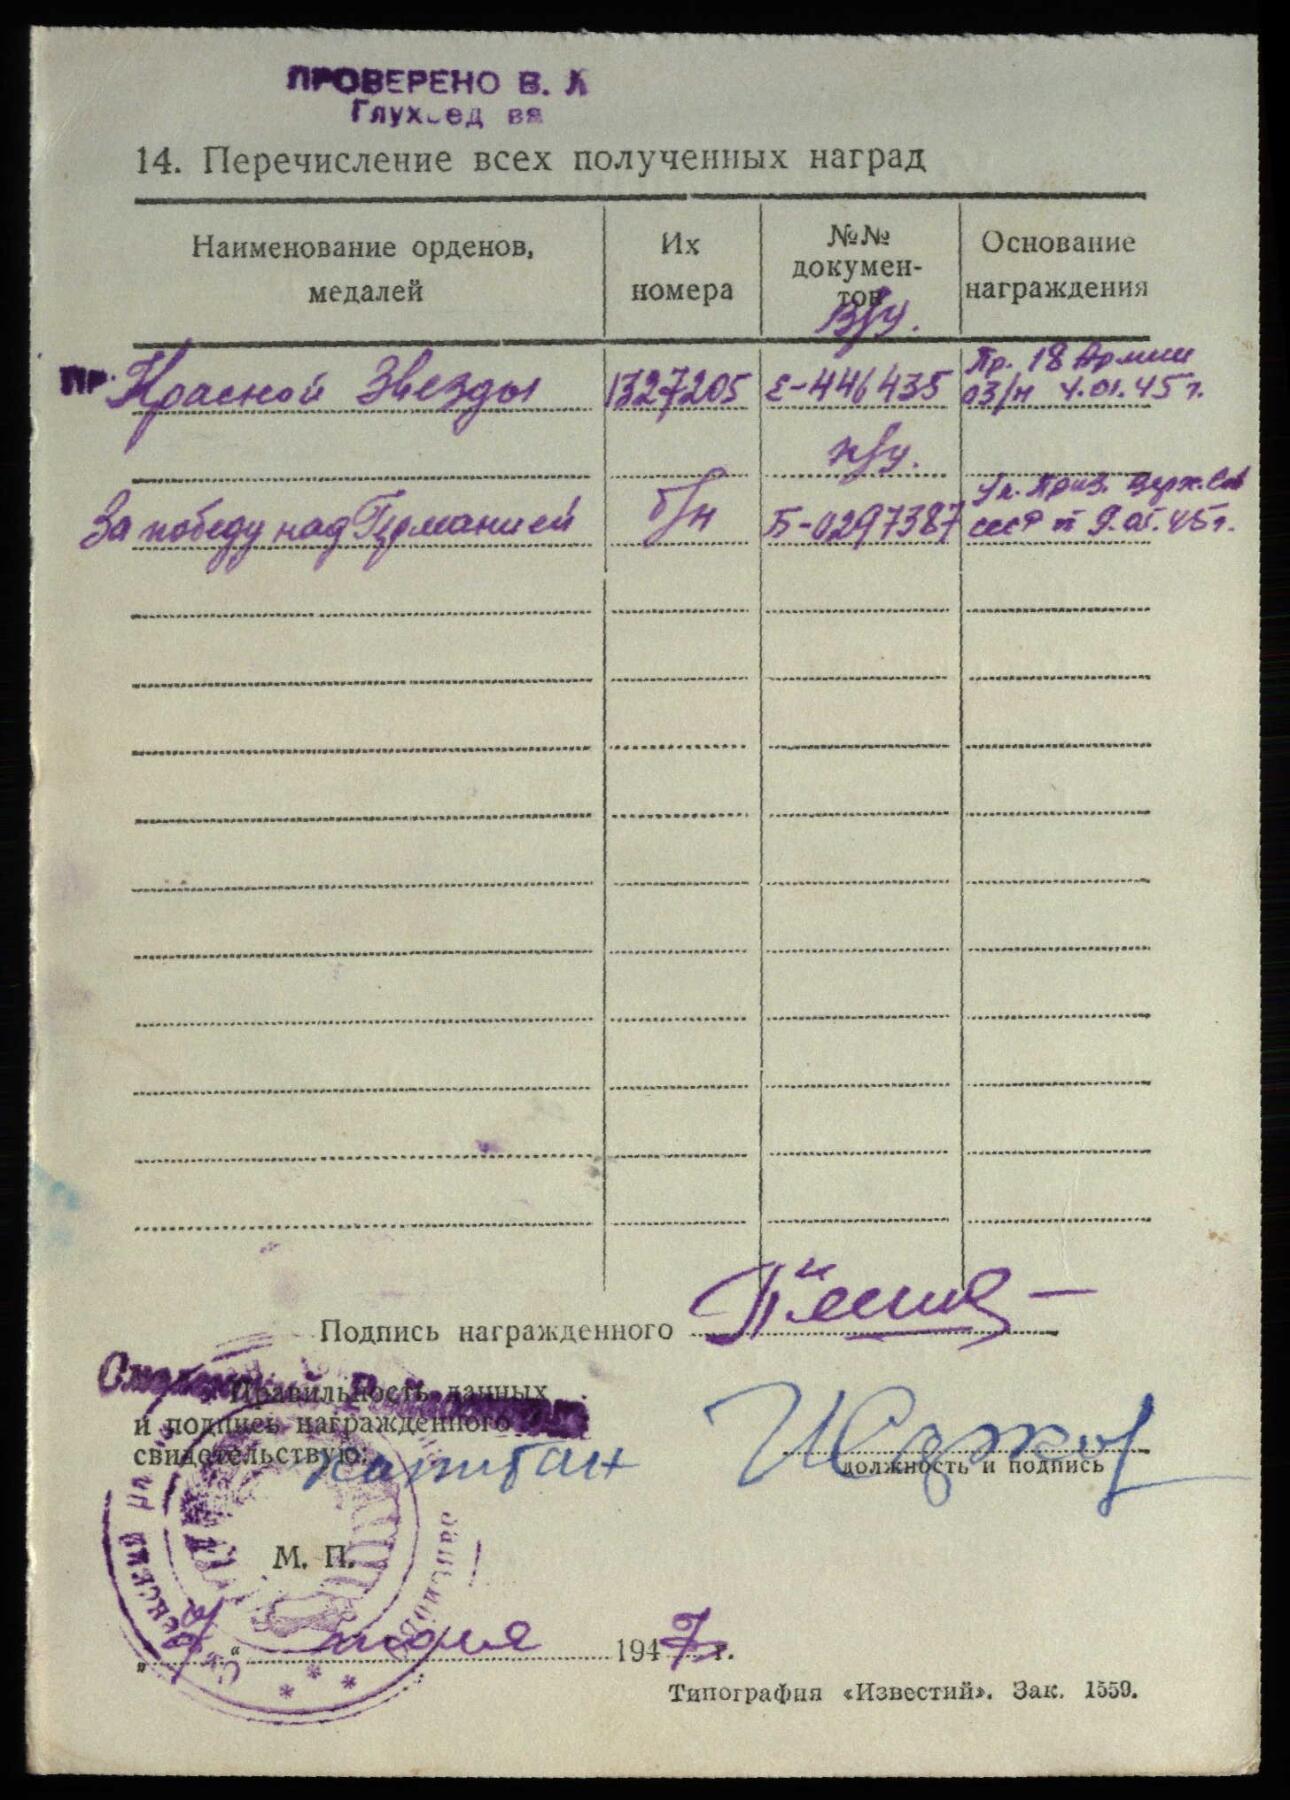 ПРОВЕРЕНО В. Л
14. Перечисление всех полученных наград
Наименование орденов, медалей
Их номера
№№ документов
Основание награждения
в/у.
пр. Красной Звезды 1327205 Е-446435 Пр. 18 Армии 03/н 4.01.45 г.
н/у.
За победу над Германией б/н Б-0297387 Ук. През. Верх. Сов СССР от 9.05.45 г.
Подпись награжденного
Правильность данных
и подпись награжденного
свидетельствую:
капитан
должность и подпись
М. П.
1947 г.
Типография «Известий». Зак. 1559.